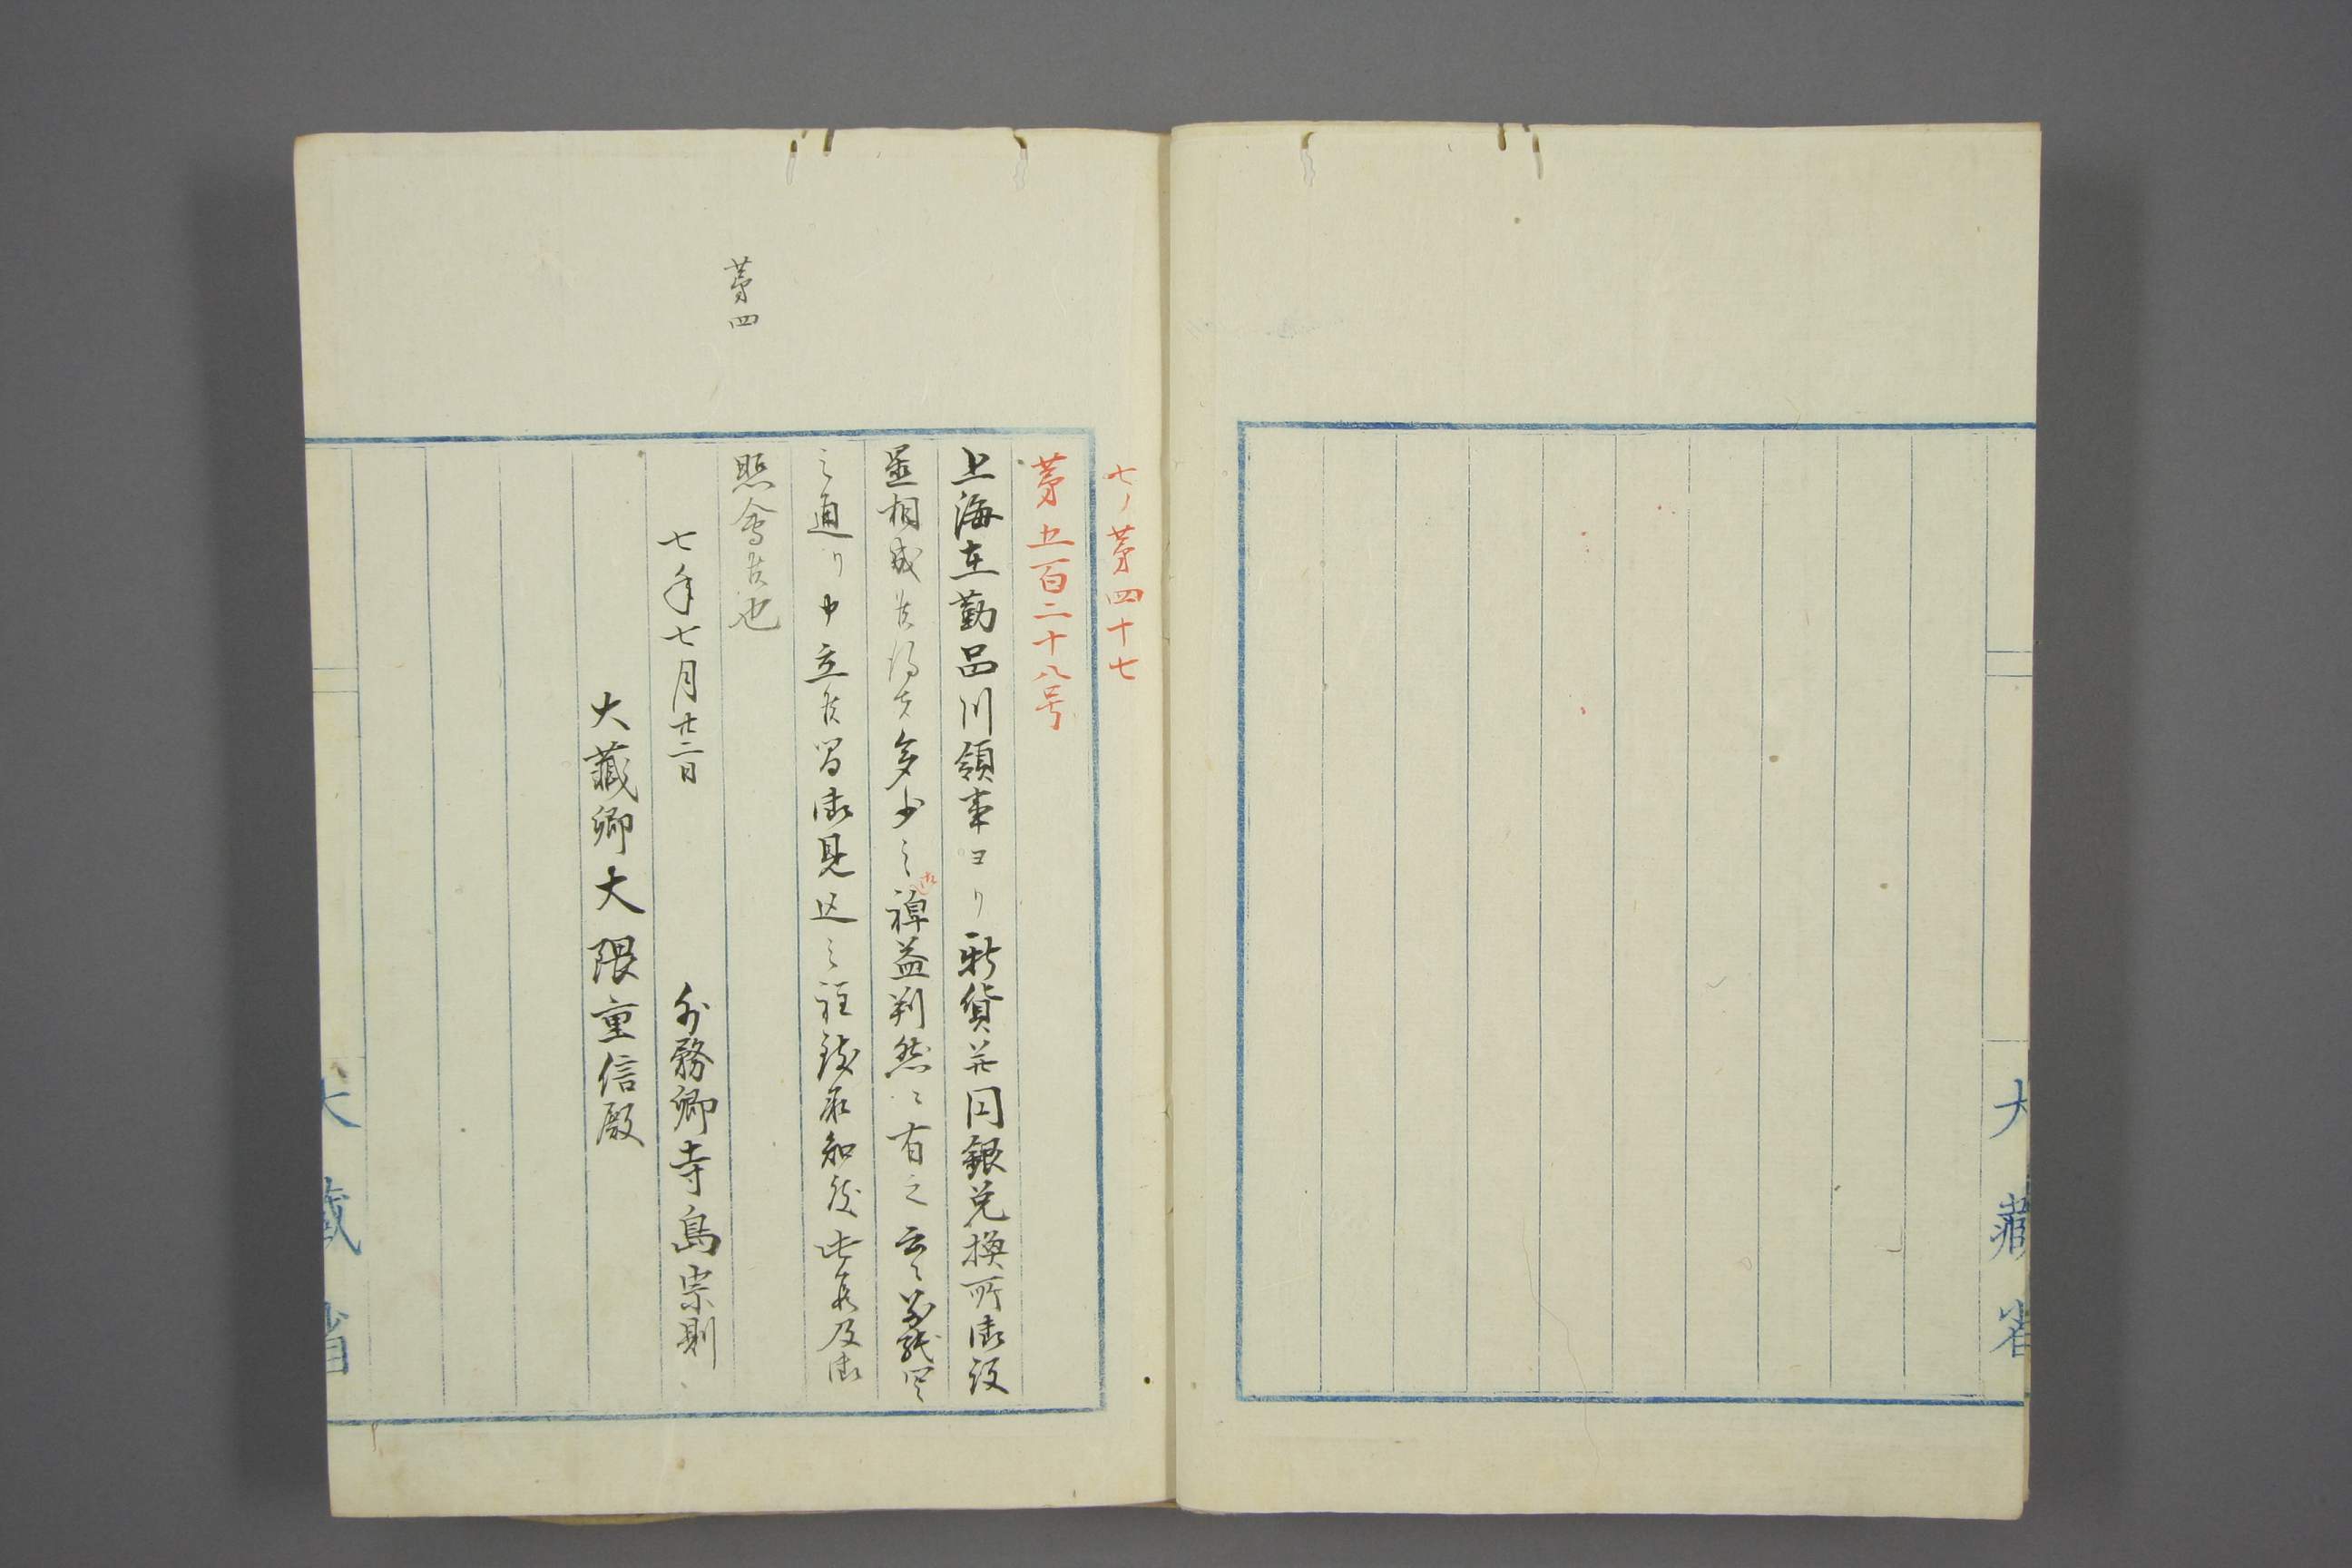 七ノ第四十七
第五百二十八号
上海在勤品川領事ヨリ新貨并円銀兌換所御設
置相成候得者多少之裨益判然ニ有之云々別紙写
之通リ申立候間御見込之程致承知度此段及御
照會候也
七年七月廿二日
外務卿寺島宗則
大藏卿大隈重信殿
第四
大藏省
大藏省